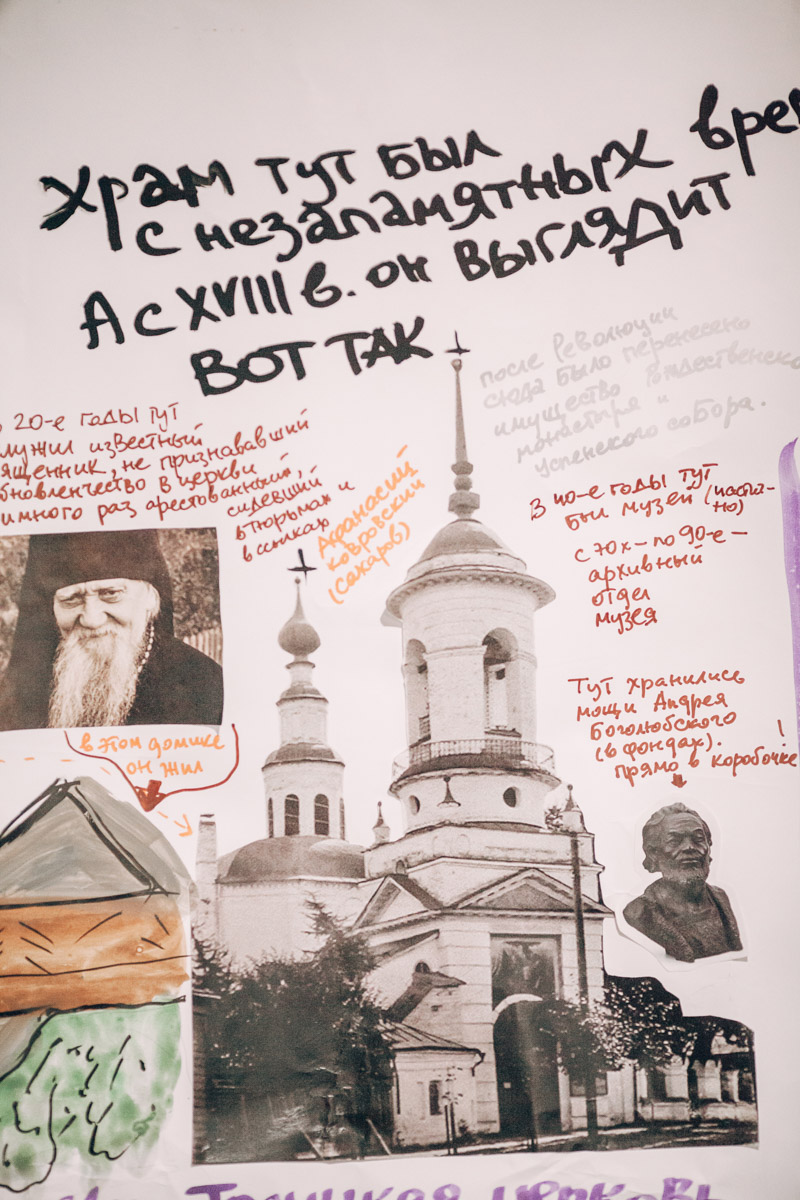 Храм тут был
с незапамятных врем
А с XVIII в. он выглядит
вот так
после Революции
сюда было перенесено
имущество Рождественско
монастыря и
Успенского собора.
в 20-е годы тут
служил известный
священник, не признававший
обновленчество в церкви
и много раз арестованный,
сидевший
в тюрьмах и
в ссылках
Афанасий
Ковровский
(Сахаров)
В 40-е годы тут
был музей
с 70х - по 90-е -
архивный
отдел
музея
Тут хранились
мощи Андрея
Боголюбского
(в фондах).
прямо в коробочке!
в этом домике
он жил
Троицкая церковь